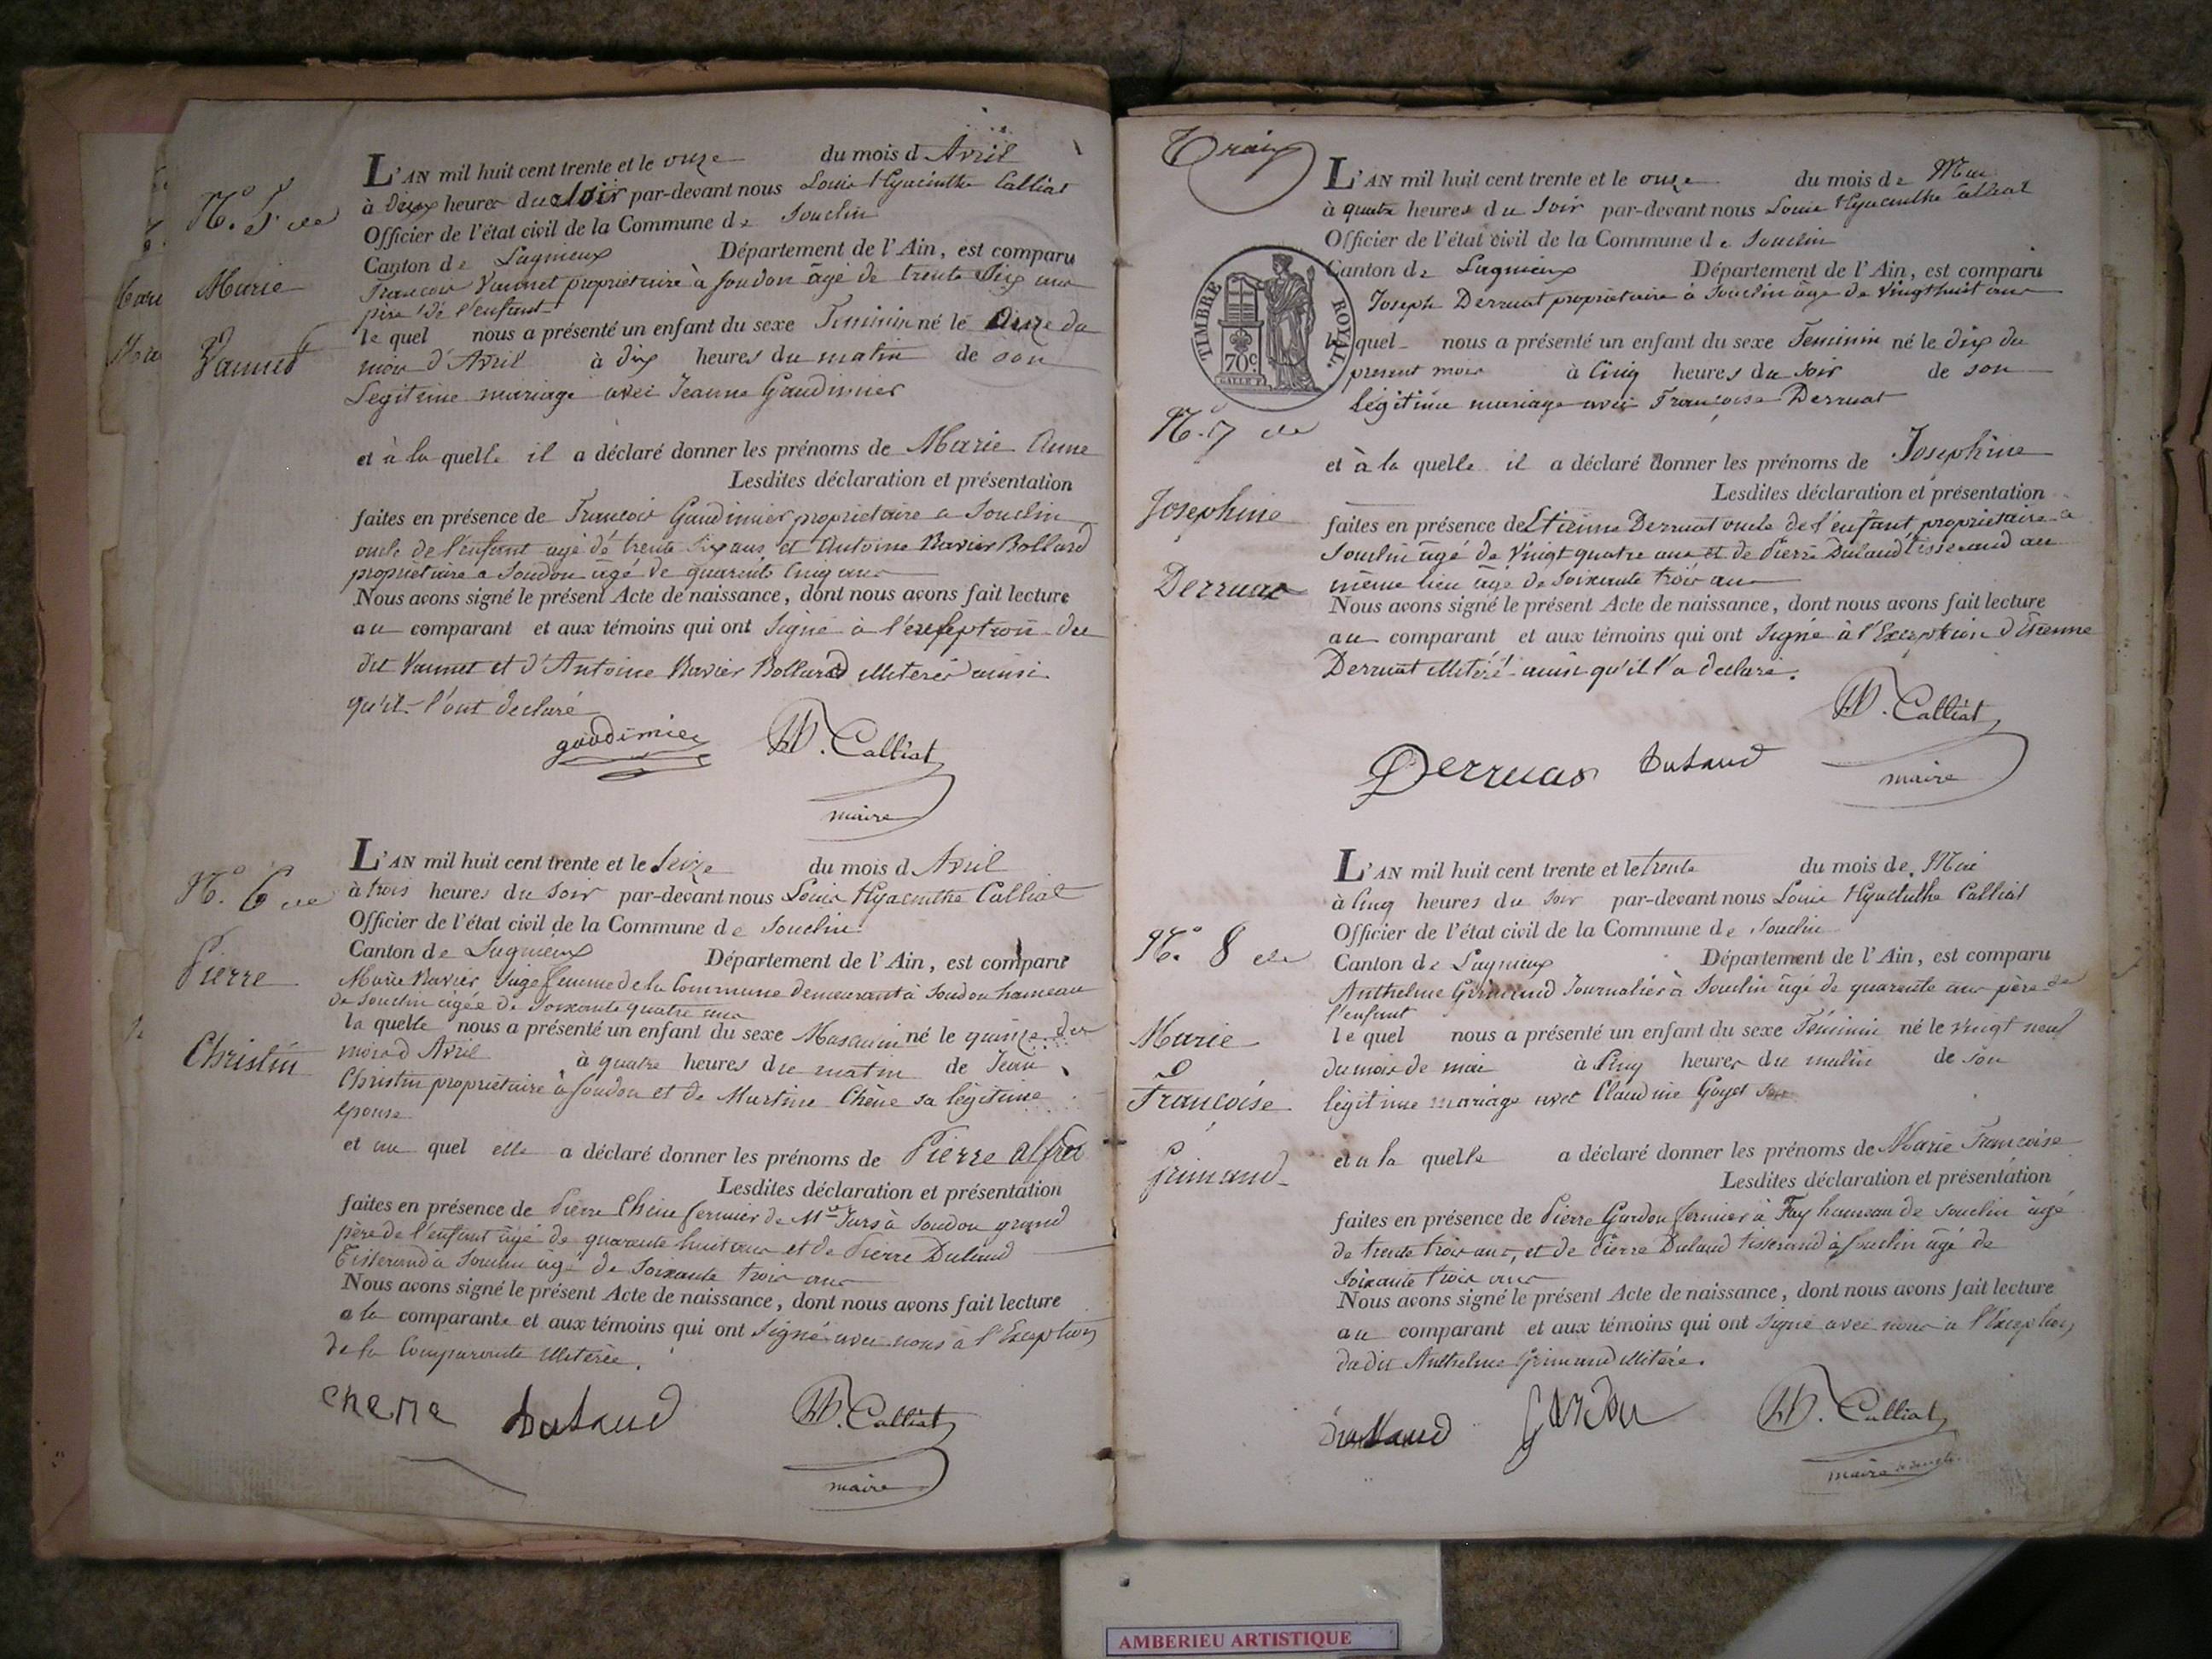 N.º 5 de
Marie
Vannet
L'AN mil huit cent trente et le onze du mois d Avril
à Deux heures du soir par-devant nous Louis Hyacinthe Calliat
Officier de l'état civil de la Commune de Souclin
Canton de Lagnieux Département de l'Ain, est comparu
François Vannet propriétaire à Soudon âgé de trente Six ans
père de l'enfant
le quel nous a présenté un enfant du sexe Feminin né le Onze du
mois d'Avril à dix heures du matin de son
Legitime mariage avec Jeanne Gaudimier
et à la quelle il a déclaré donner les prénoms de Marie Anne
Lesdites déclaration et présentation
faites en présence de François Gaudimier propriétaire a Souclin
oncle de l'enfant agé de trente Six ans et Antoine Ravier Bollard
propriétaire a Soudon âgé de quarente Cinq ans
Nous avons signé le présent Acte de naissance, dont nous avons fait lecture
au comparant et aux témoins qui ont Signé à l'exception du
dit Vannet et d'Antoine Ravier Bollard illiteré ainsi
qu'il l'ont declaré
gaudimier H. Calliat
maire
N.º 6 de
Pierre
Christin
L'AN mil huit cent trente et le Seize du mois d Avril
à trois heures du Soir par-devant nous Louis Hyacinthe Calliat
Officier de l'état civil de la Commune de Souclin
Canton de Lagnieux Département de l'Ain, est comparu
Marie Ravier Sage femme de la Commune demeurant à Soudon hameau
de Souclin agée de Soixante quatre ans
la quelle nous a présenté un enfant du sexe Masculin né le quinze du
mois d Avril à quatre heures du matin de Jean
Christin propriétaire à Soudon et de Martine Chêne sa légitime
épouse
et au quel elle a déclaré donner les prénoms de Pierre alfred
Lesdites déclaration et présentation
faites en présence de Pierre Chêne fermier de Mr Jurs à Soudon grand
père de l'enfant âgé de quarante huit ans et de Pierre Dulaud
Tisserand à Souclin âgé de Soixante trois ans
Nous avons signé le présent Acte de naissance, dont nous avons fait lecture
a la comparante et aux témoins qui ont Signé avec nous à l'Exception
de la Comparante illiterée.
chene Dulaud H. Calliat
maire
Troix
TIMBRE ROYAL
70c
L'AN mil huit cent trente et le onze du mois de Mai
à quatre heures du Soir par-devant nous Louis Hyacinthe Calliat
Officier de l'état civil de la Commune de Souclin
Canton de Lagnieux Département de l'Ain, est comparu
Joseph Derruat propriétaire à Souclin âgé de Vingt huit ans
le quel nous a présenté un enfant du sexe Feminin né le dix du
present mois à Cinq heures du Soir de son
légitime mariage avec Françoise Derruat
N.º 7 de
Josephine
Derruat
et à la quelle il a déclaré donner les prénoms de Josephine
Lesdites déclaration et présentation
faites en présence de Etienne Derruat oncle de l'enfant propriétaire a
Souclin âgé de Vingt quatre ans et de Pierre Dulaud tisserand au
même lieu âgé de Soixante trois ans
Nous avons signé le présent Acte de naissance, dont nous avons fait lecture
au comparant et aux témoins qui ont Signé à l'Exception d'Etienne
Derruat illiteré ainsi qu'il l'a declaré.
H. Calliat
Derruas Dulaud maire
N.º 8 de
Marie
Françoise
Grimaud
L'AN mil huit cent trente et le trente du mois de Mai
à Cinq heures du Soir par-devant nous Louis Hyacinthe Calliat
Officier de l'état civil de la Commune de Souclin
Canton de Lagnieux Département de l'Ain, est comparu
Anthelme Grimaud Journalier à Souclin âgé de quarante ans père de
l'enfant
le quel nous a présenté un enfant du sexe Féminin né le vingt neuf
du mois de mai à Cinq heures du matin de son
légitime mariage avec Claudine Goyet
et a la quelle a déclaré donner les prénoms de Marie Françoise
Lesdites déclaration et présentation
faites en présence de Pierre Gardon fermier à Fay hameau de Souclin âgé
de trente trois ans, et de Pierre Dulaud tisserand à Souclin âgé de
Soixante trois ans
Nous avons signé le présent Acte de naissance, dont nous avons fait lecture
au comparant et aux témoins qui ont Signé avec nous a l'Exception
du dit Anthelme Grimaud illiteré.
Dulaud Gardon H. Calliat
maire
AMBERIEU ARTISTIQUE